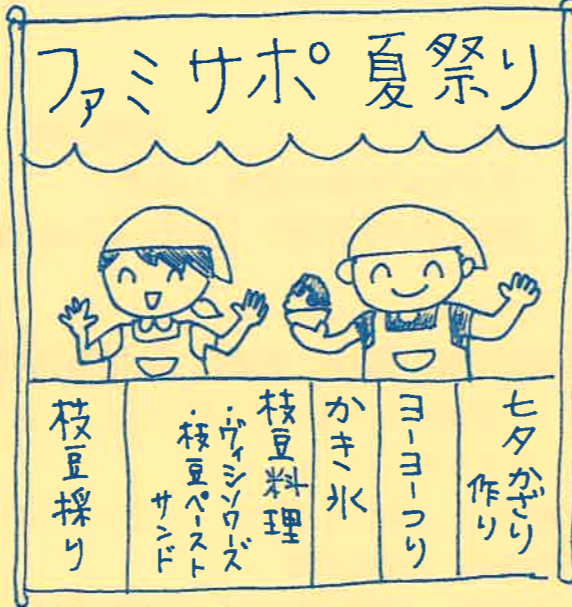 ファミサポ 夏祭り
七夕かざり
作り
ヨーヨーつり
かき氷
枝豆料理
・ヴィシソワーズ
・枝豆ペースト
サンド
枝豆採り